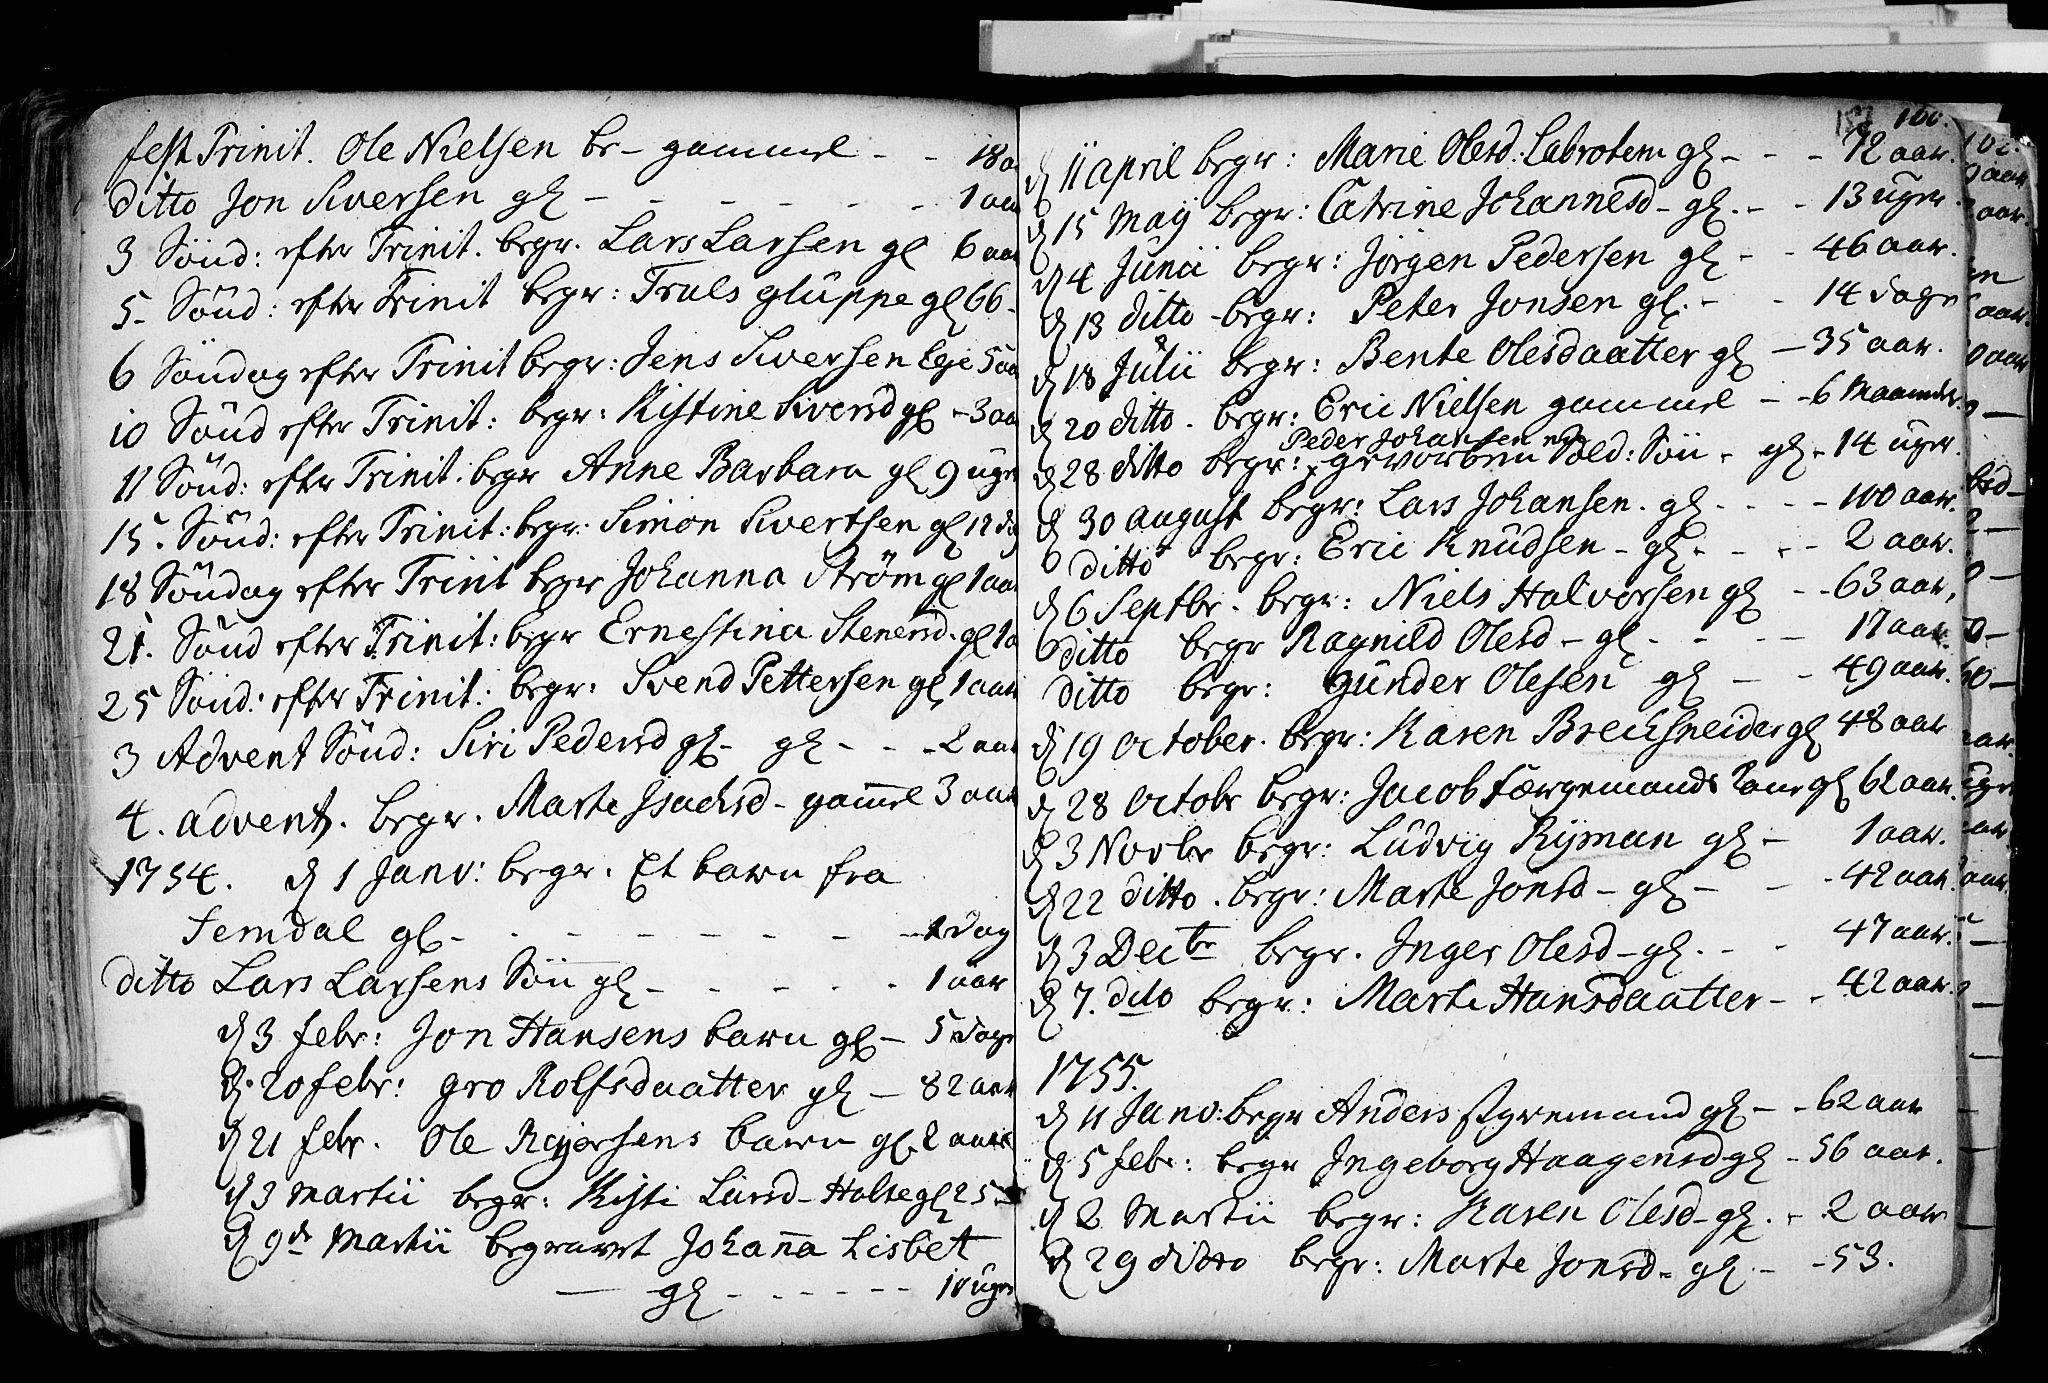 fest Trinit. Ole Nielsen be- gammel - - 18 a
ditto Jon Siversen gl - - - - - - 1 aar
3 Sönd: efter Trinit. begr. Lars Larsen gl 6 aar
5- Sönd: efter Trinit begr: Truls gluppe gl 66-
6 Söndag efter Trinit begr: Jens Siversen Eye 5 aa
10 Sönd efter Trinit: begr: Kistine Siversd gl - 3 aa
11 Sönd: efter Trinit. begr Anne Barbara gl 9 uger
15. Sönd: efter Trinit: begr: Simon Sivertsen gl 12 da
18 Söndag efter Trinit begr Johanna Strøm gl 1 aar
21. Sönd efter Trinit: begr Ernestina Stenersd. gl 1 a
25 Sönd: efter Trinit: begr: Svend Pettersen gl 1 aar
3 Advent Sönd: Siri Pedersd gl- gl - - - 2 aar
4. advent. begr. Marte Isachsd - gamel 3 aar
1754. d 1 Janv: begr. Et barn fra
Semdal gl- - - - - - - - 1 dag
ditto Lars Larsens Sön gl - - - - - 1 aar
d 3 febr: Jon Hansens barn gl - 5 dage
d. 20 febr: gro Rolfsdaatter gl - 82 aar
d 21 febr. Ole Reyersens barn gl. 2 aar
d 3 martii begr: Kisti Larsd - Holte gl 25 -
d 9de Martii begravet Johanna Lisbet
— gl - - - - - - 10 uger
100.
d 11 april begr: Marie Olesd: Labrotem gl - - - 72 aar.
d 15 May begr: Catrine Johannesd - gl. - - 13 uger
d 4 Junii begr: Jörgen Pedersen gl - - 46 aar.
d 13 ditto - begr: Peter Jonsen gl. - - 14 dage
d 18 Julii begr: Bente Olesdaatter gl - 35 aar.
d 20 ditto. begr: Eric Nielsen gammel - - 6 Maaneder
Peder Johansen
d 28 ditto begr: gevorben Sold: Sön - gl - 14 uger.
d 30 august begr: Lars Johansen. gl - - - - 100 aar.
ditto begr: Eric Knudsen - gl - - - - 2 aar.
d 6 Septbr. begr: Niels Halvorsen gl - - 63 aar,
ditto begr Ragnild Olesd - gl - - - - 17 aar.
ditto begr: Gunder Olesen gl - - 49 aar.
d 19 October. begr: Karen Breckhneider gl 48 aar
d 28 Octobr begr: Jacob færgemands kone gl 62 aar.
d 3 Novbr begr: Ludvig Ryman gl - 1 aar.
d 22 ditto. begr: Marte Jonsd - gl - - - 42 aar.
d 3 Decbr begr. Inger Olesd - gl. - - 47 aar.
d 7. dito begr: Marte Hansdaatter - - 42 aar.
1755.
d 11 Janv: begr Anders styremand gl - - 62 aar
d 5 febr: begr Ingeborg Haagensd gl - 56 aar.
d 2 Martii begr: Karen Olesd - gl. - 2 aar
d 29 ditto begr: Marte Jonsd - gl - - 53.